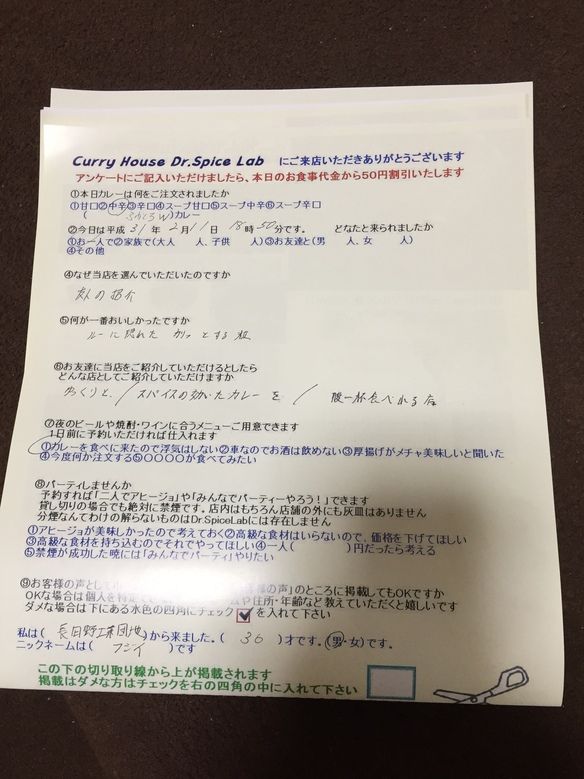 Curry House Dr.Spice Lab にご来店いただきありがとうございます
アンケートにご記入いただけましたら、本日のお食事代金から50円割引いたします
①本日カレーは何をご注文されましたか
①甘口②中辛③辛口④スープ甘口⑤スープ中辛⑥スープ辛口
( )カレー
②今日は平成 31 年 2 月 11 日 18 時 50 分です。 どなたと来られましたか
①お一人で②家族で(大人 人、子供 人)③お友達と(男 人、女 人)
④その他
④なぜ当店を選んでいただいたのですか
友人の紹介
⑤何が一番おいしかったですか
ルーに隠れた カッとする
⑥お友達に当店をご紹介していただけるとしたら
どんな店としてご紹介していただけますか
ゆっくりと、スパイスの効いたカレーを 腹一杯食べれる店
⑦夜のビールや焼酎・ワインに合うメニューご用意できます
1日前に予約いただければ仕入れます
①カレーを食べに来たので浮気はしない②車なのでお酒は飲めない③厚揚げがメチャ美味しいと聞いた
④今度何か注文する⑤〇〇〇〇が食べてみたい
⑧パーティしませんか
予約すれば「二人でアヒージョ」や「みんなでパーティーやろう!」できます
貸し切りの場合でも絶対に禁煙です。店内はもちろん店舗の外にも灰皿はありません
分煙なんてわけの解らないものはDr.SpiceLabには存在しません
①アヒージョが美味しかったので考えておく②高級な食材はいらないので、価格を下げてほしい
③高級な食材を持ち込むのでそれでやってほしい④一人( )円だったら考える
⑤禁煙が成功した暁には「みんなでパーティ」やりたい
⑨お客様の声として 様の声」のところに掲載してもOKですか
OKな場合は個人を特定でき ムや住所・年齢など教えていただくと嬉しいです
ダメな場合は下にある水色の四角にチェック を入れて下さい
私は( 長日野工業団地 )から来ました。( 36 )才です。(男・女)です。
ニックネームは( フジイ )です
この下の切り取り線から上が掲載されます
掲載はダメな方はチェックを右の四角の中に入れて下さい